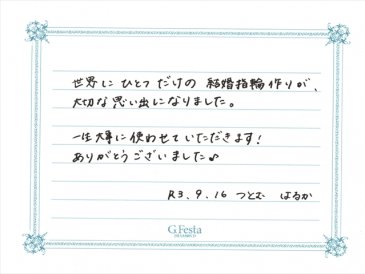 世界にひとつだけの 結婚指輪作りが、
大切な思い出になりました。
一生大事に使わせていただきます！
ありがとうございました♪
R3.9.16 つとむ はるか
G.Festa